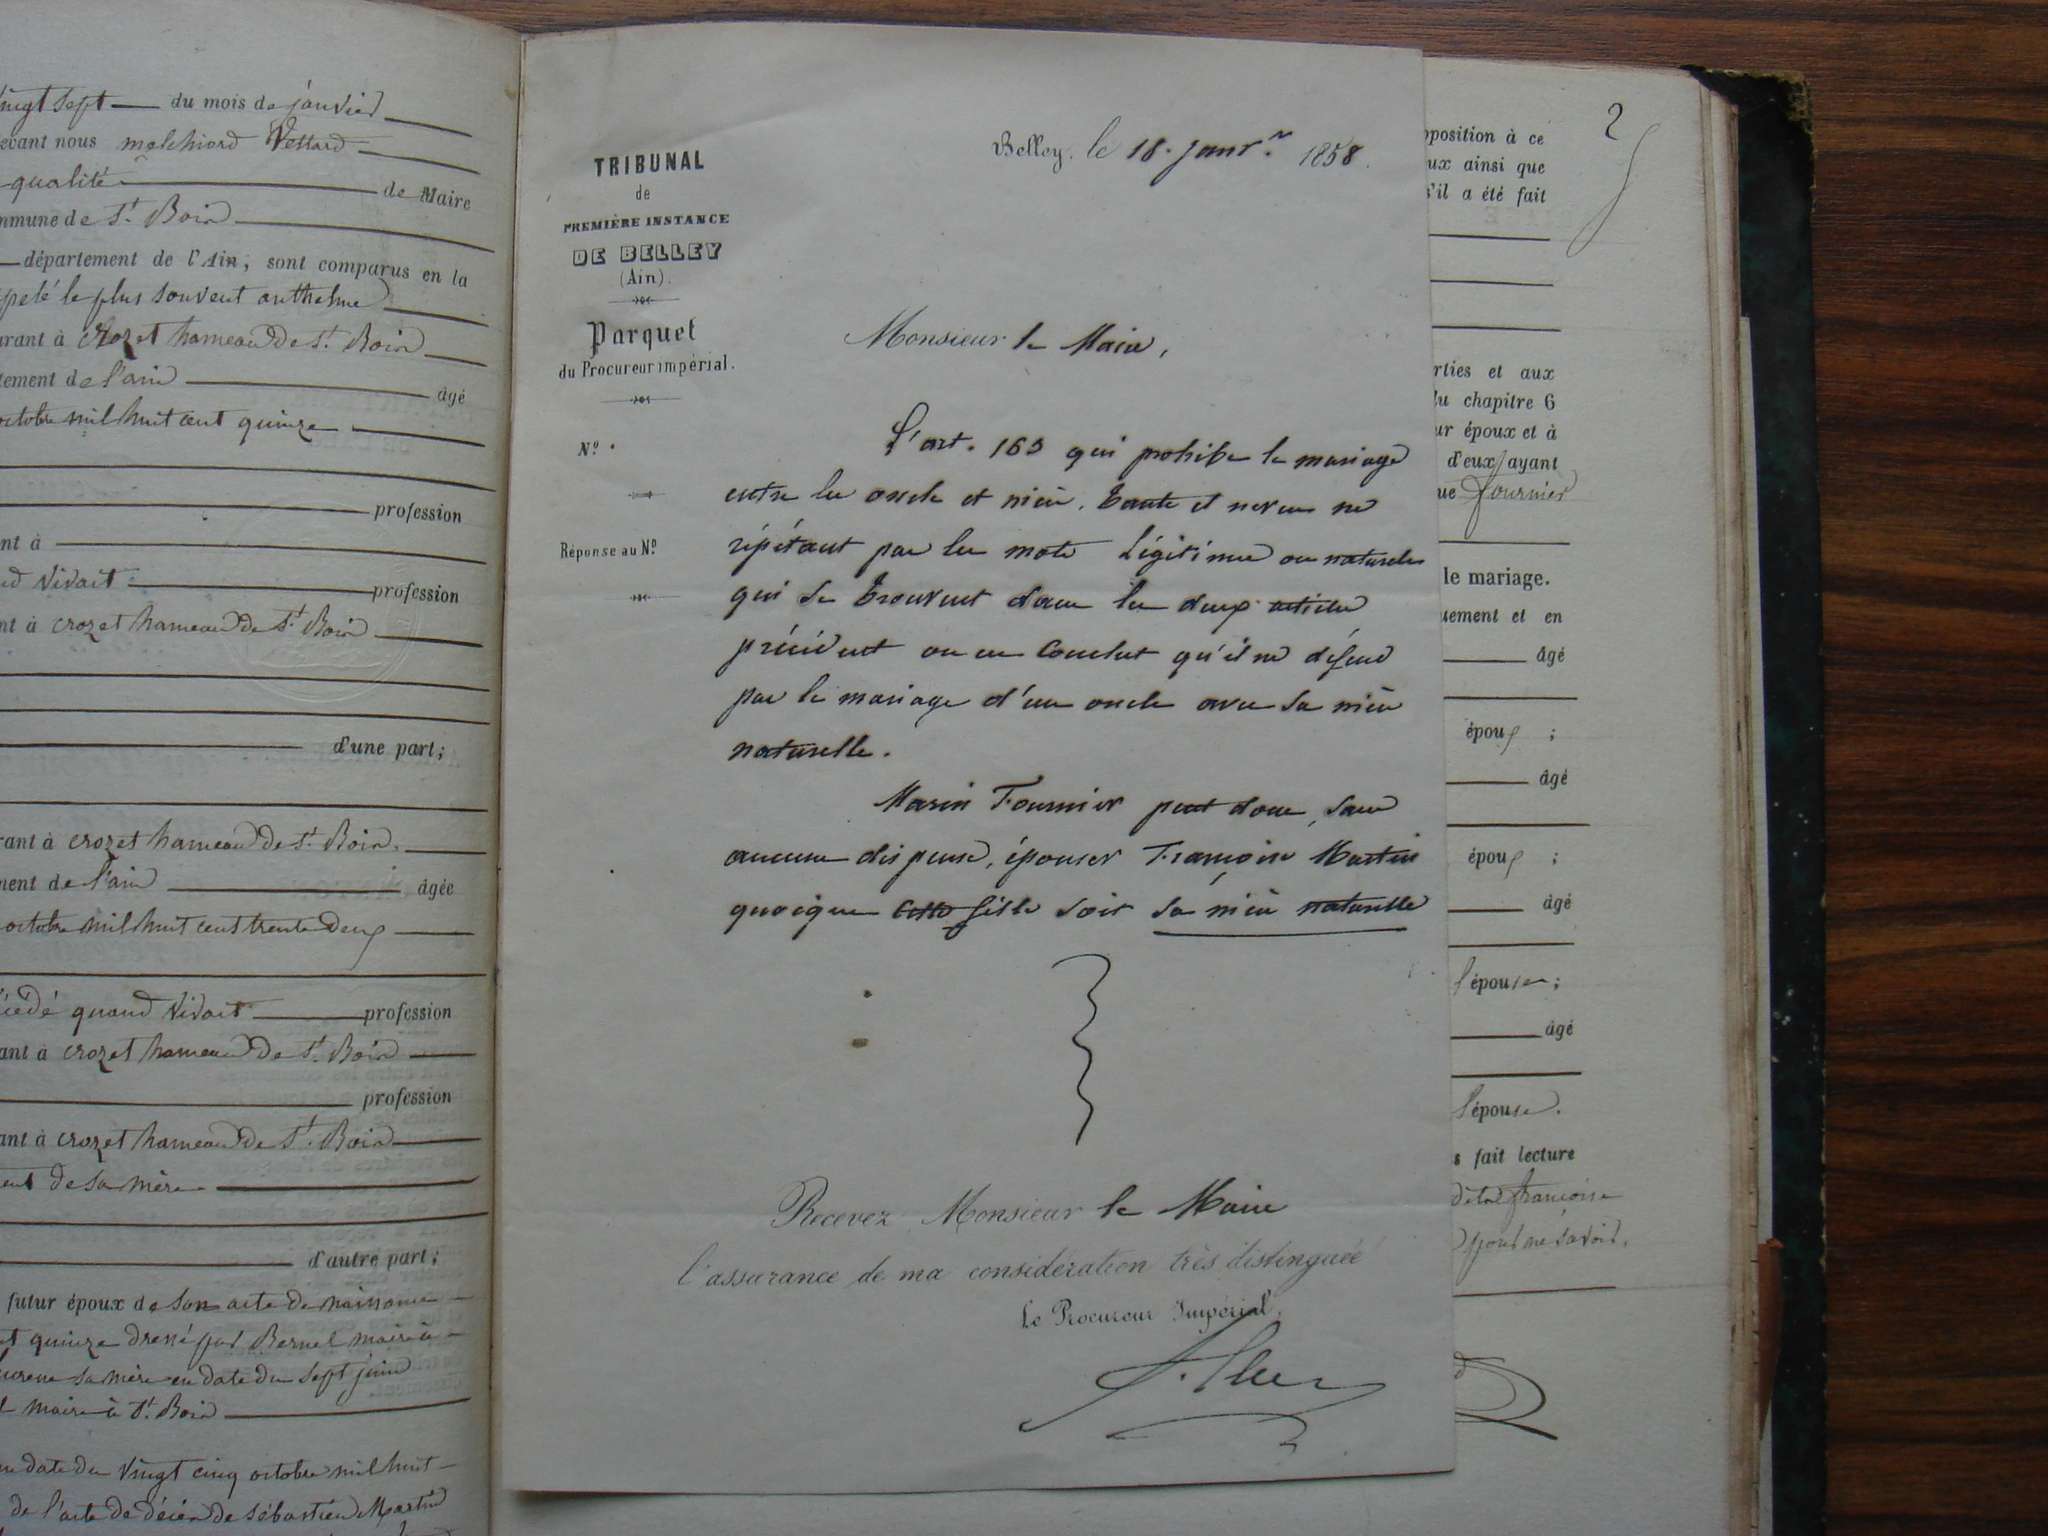 Vingt sept du mois de janvier
devant nous melchiord Vettard
qualité de Maire
commune de St Boin
département de l'Ain; sont comparus en la
appelé le plus souvent anthelme
demeurant à crozet hameau de St. Boin
département de l'ain âgé
octobre mil huit cent quinze
profession
nt à
vivait profession
nt à crozet hameau de St. Boin
d'une part;
rant à crozet hameau de St. Boin.
ment de l'ain âgée
octobre mil huit cent trente deux
décédé quand vivait profession
ant à crozet hameau de St. Boin
profession
ant à crozet hameau de St. Boin
de sa mère
d'autre part;
futur époux de son acte de naissance
quinze dressé par Bernel maire à
sa mère en date du sept juin
maire à St. Boin
date du vingt cinq octobre mil huit
de l'acte de décès de sébastien Martin
TRIBUNAL
de
PREMIÈRE INSTANCE
DE BELLEY
(Ain).
Parquet
du Procureur impérial.
N.º
Réponse au N.º
Belley, le 18. Janvr. 1858.
Monsieur le Maire,
L'art. 163 qui prohibe le mariage
entre les oncle et nièce, tante et neveu ne
répétant pas les mots légitimes ou naturels
qui se trouvent dans les deux articles
précédent on en conclut qu'il ne défend
pas le mariage d'un oncle avec sa nièce
naturelle.
Marin Fournier peut donc, sans
aucune dispense, épouser Françoise Martin
quoique cette fille soit sa nièce naturelle
Recevez Monsieur le Maire
l'assurance de ma considération très distinguée
Le Procureur Impérial,
2
opposition à ce
ux ainsi que
s'il a été fait
rties et aux
du chapitre 6
ur époux et à
d'eux ayant
ue fournier
le mariage.
uement et en
âgé
époux ;
âgé
époux ;
âgé
l'épouse ;
âgé
l'épouse.
s fait lecture
françoise
pour ne savoir.